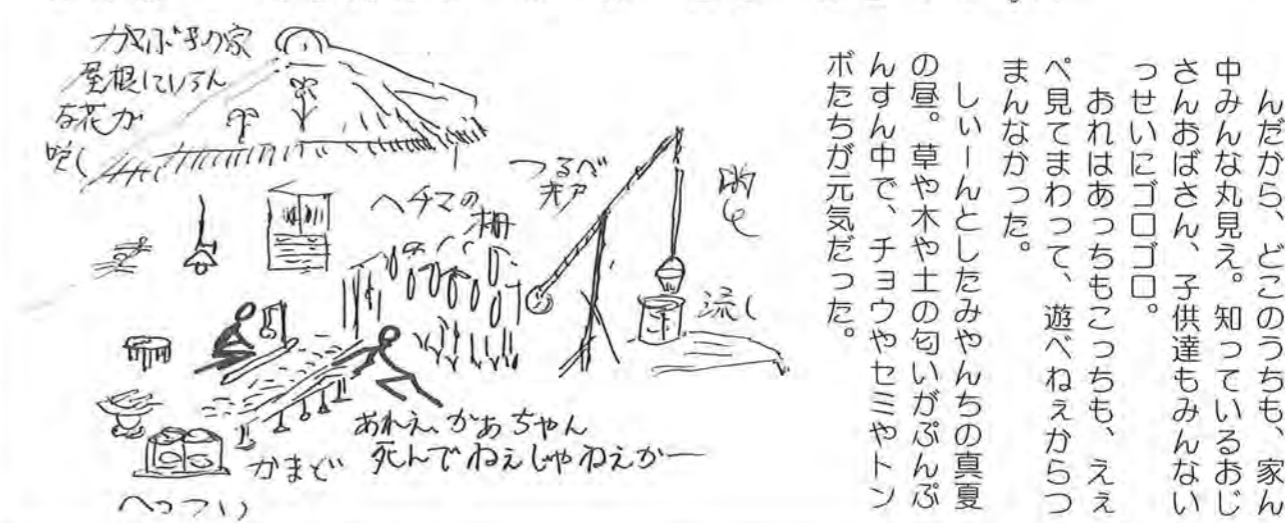 んだから、どこのうちも、家ん
中みんな丸見え。知っているおじ
さんおばさん、子供達もみんない
っせいにゴロゴロ。
おれはあっちもこっちも、ええ
ぺ見てまわって、遊べねぇからつ
まんなかった。
しぃーんとしたみやんちの真夏
の昼。草や木や土の匂いがぷんぷ
んすん中で、チョウやセミやトン
ボたちが元気だった。
かやぶきの家
屋根にいろん
な花が
咲く
ヘチマの
棚
つるべ
井戸
流し
あれえ、かあちゃん
死んでねぇじゃねえかー
かまど
へっつい